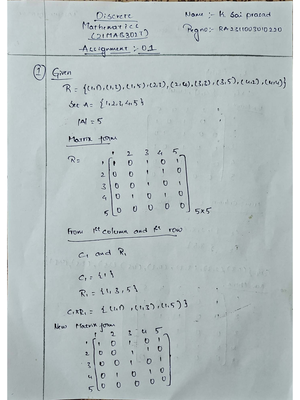 Discrete
Mathematics
(21MAB302T)
Assignment : 01
Name :- K Sai prasad
Regno:- RA2511003010220
① Given
R = {(1,1), (1,3), (1,5), (2,3), (2,4), (3,3), (3,5), (4,2), (4,4)}
Set A = {1,2,3,4,5}
|A| = 5
Matrix form
1 2 3 4 5
R =
1 1 0 1 0 1
2 0 0 1 1 0
3 0 0 1 0 1
4 0 1 0 1 0
5 0 0 0 0 0 5×5
From 1st column and 1st row
C1 and R1
C1 = {1}
R1 = {1,3,5}
C1×R1 = {(1,1), (1,3), (1,5)}
New Matrix form
1 2 3 4 5
1 1 0 1 0 1
2 0 0 1 1 0
3 0 0 1 0 1
4 0 1 0 1 0
5 0 0 0 0 0